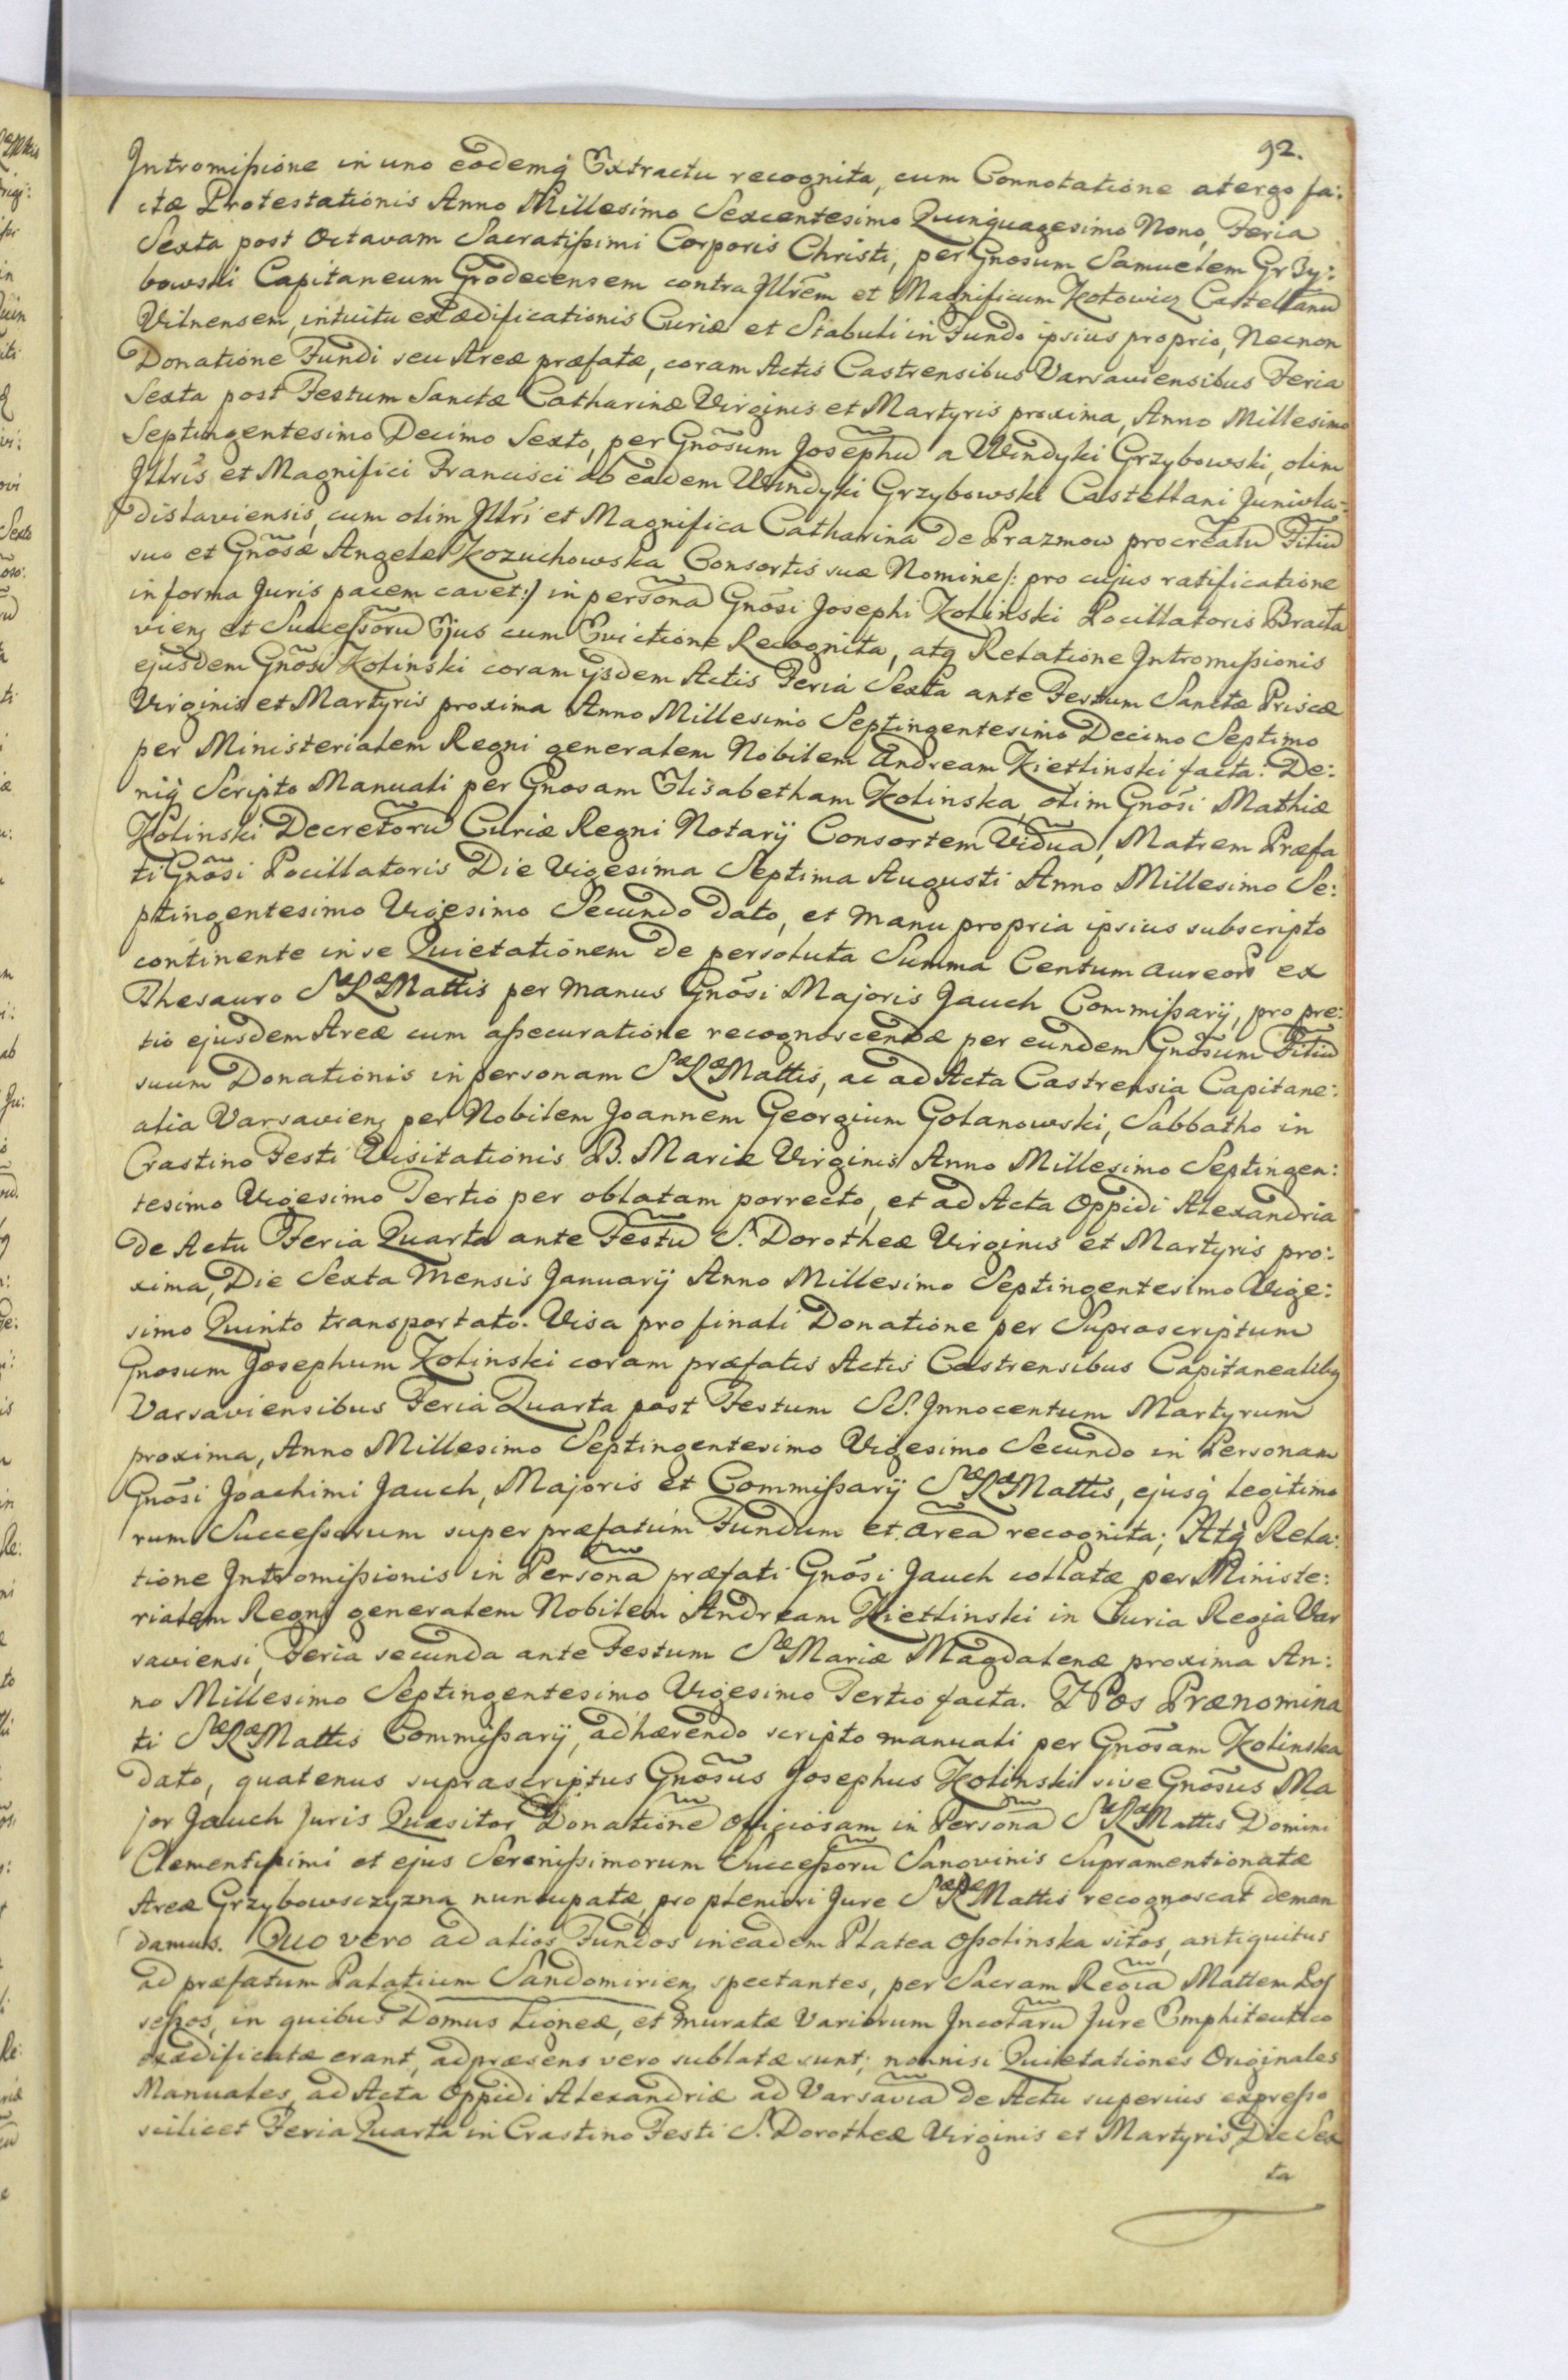 92.
Intromissione in uno eodemq̃ Extractu recognita, cum Connotatione a tergo fa:
ctæ Protestationis Anno Millesimo Sexcentesimo Quinquagesimo Nono, Feria
Sexta post Octavam Sacratissimi Corporis Christi, per Gnosum Samuelem Grzy:
bowski Capitaneum Grodecensem contra Illrẽm et Magnificum Kotowicz Castellanũ
Vilnensem, intuitu exædificationis Curiæ et Stabuli in Fundo ipsius proprio, Necnon
Donatione Fundi seu Areæ præfatæ, coram Actis Castrensibus Varsaviensibus Feria
Sexta post Festum Sanctæ Catharinæ Virginis et Martyris proxima, Anno Millesimo
Septingentesimo Decimo Sexto, per Gnõsum Josephũ a Windyki Grzybowski, olim
Illris et Magnifici Francisci ab eadem Windyki Grzybowski Castellani Junivla:
dislaviensis, cum olim Illri et Magnifica Catharina de Prazmow procreatũ Filiũ
suo et Gnõsæ Angelæ Kozuchowska Consortis suæ Nomine /: pro cujus ratificatione
in forma Juris pacem cavet :/ in persona Gnõsi Josephi Kolinski Pocillatoris Bracła
vien, et Successorũ Ejus cum Evictione Recognita, atq Relatione Intromissionis
ejusdem Gnõsi Kolinski coram ijsdem Actis Feria Sexta ante Festum Sanctæ Priscæ
Virginis et Martyris proxima Anno Millesimo Septingentesimo Decimo Septimo
per Ministerialem Regni generalem Nobilem Andream Kietlinski facta. De:
niq̃ Scripto Manuali per Gnosam Elisabetham Kolinska, olim Gnõsi Mathiæ
Kolinski Decretorũ Curiæ Regni Notarij Consortem Viduã, Matrem Præfa
ti Gnõsi Pocillatoris Die Vigesima Septima Augusti Anno Millesimo Se:
ptingentesimo Vigesimo Secundo dato, et manu propria ipsius subscripto
continente in se Quietationem de persoluta Summa Centum aureorũ ex
Thesauro Sæ Ræ Mattis per manus Gnõsi Majoris Jauch Commissarij, pro pre:
tio ejusdem Areæ cum assecuratione recognoscendæ per eundem Gnõsum Filiũ
suum Donationis in personam Sæ Ræ Mattis, ac ad Acta Castrensia Capitane:
alia Varsavien, per Nobilem Joannem Georgium Golanowski, Sabbatho in
Crastino Festi Visitationis B. Mariæ Virginis Anno Millesimo Septingen:
tesimo Vigesimo Tertio per oblatam porrecto, et ad Acta Oppidi Alexandria
de Actu Feria Quarta ante Festũ S. Dorotheæ Virginis et Martyris pro:
xima, Die Sexta Mensis Januarij Anno Millesimo Septingentesimo Vige:
simo Quinto transportato. Visa pro finali Donatione per Suprascriptum
Gnosum Josephum Kolinski coram præfatis Actis Castrensibus Capitanealibq
Varsaviensibus Feria Quarta post Festum SS. Innocentum Martyrum
proxima, Anno Millesimo Septingentesimo Vigesimo Secundo in Personam
Gnõsi Joachimi Jauch, Majoris et Commissarij Sæ Ræ Mattis, ejusq̃ legitimo
rum Successorum super præfatum Fundum et areã recognita; Atq̃ Rela:
tione Intromissionis in Personã præfati Gnõsi Jauch collatæ per Ministe:
rialem Regni generalem Nobilem Andream Kietlinski in Curia Regia Var
saviensi, Feria secunda ante Festum Sæ Mariæ Magdalenæ proxima An:
no Millesimo Septingentesimo Vigesimo Tertio facta. Nos Prænomina
ti Sæ Ræ Mattis Commissarij, adhærendo scripto manuali per Gnõsam Kolinska
dato, quatenus suprascriptus Gnõsus Josephus Kolinski sive Gnõsus Ma
jor Jauch Juris Quæsitor Donationẽ officiosam in Personã Sæ Ræ Mattis Domini
Clementissimi et ejus Serenissimorum Successorũ Sanovinis Supramentionatæ
Areæ Grzybowsczyzna nuncupatæ, pro pleniori Jure Sæ Ræ Mattis recognoscat deman
damus. Quo vero ad alios Fundos in eadem Platea Ossolinska sitos, antiquitus
ad præfatum Palatium Sandomirien, spectantes, per Sacram Regiã Mattem Pos
sessos, in quibus Domus Ligneæ, et muratæ Variorum Incolarũ Jure Emphiteutico
exædificatæ erant, ad præsens vero sublatæ sunt; nonnisi Quietationes Originales
Manuales, ad Acta Oppidi Alexandriæ ad Varsaviã de Actu superius expresso
scilicet Feria Quarta in Crastino Festi S. Dorotheæ Virginis et Martyris, Die Sex
ta